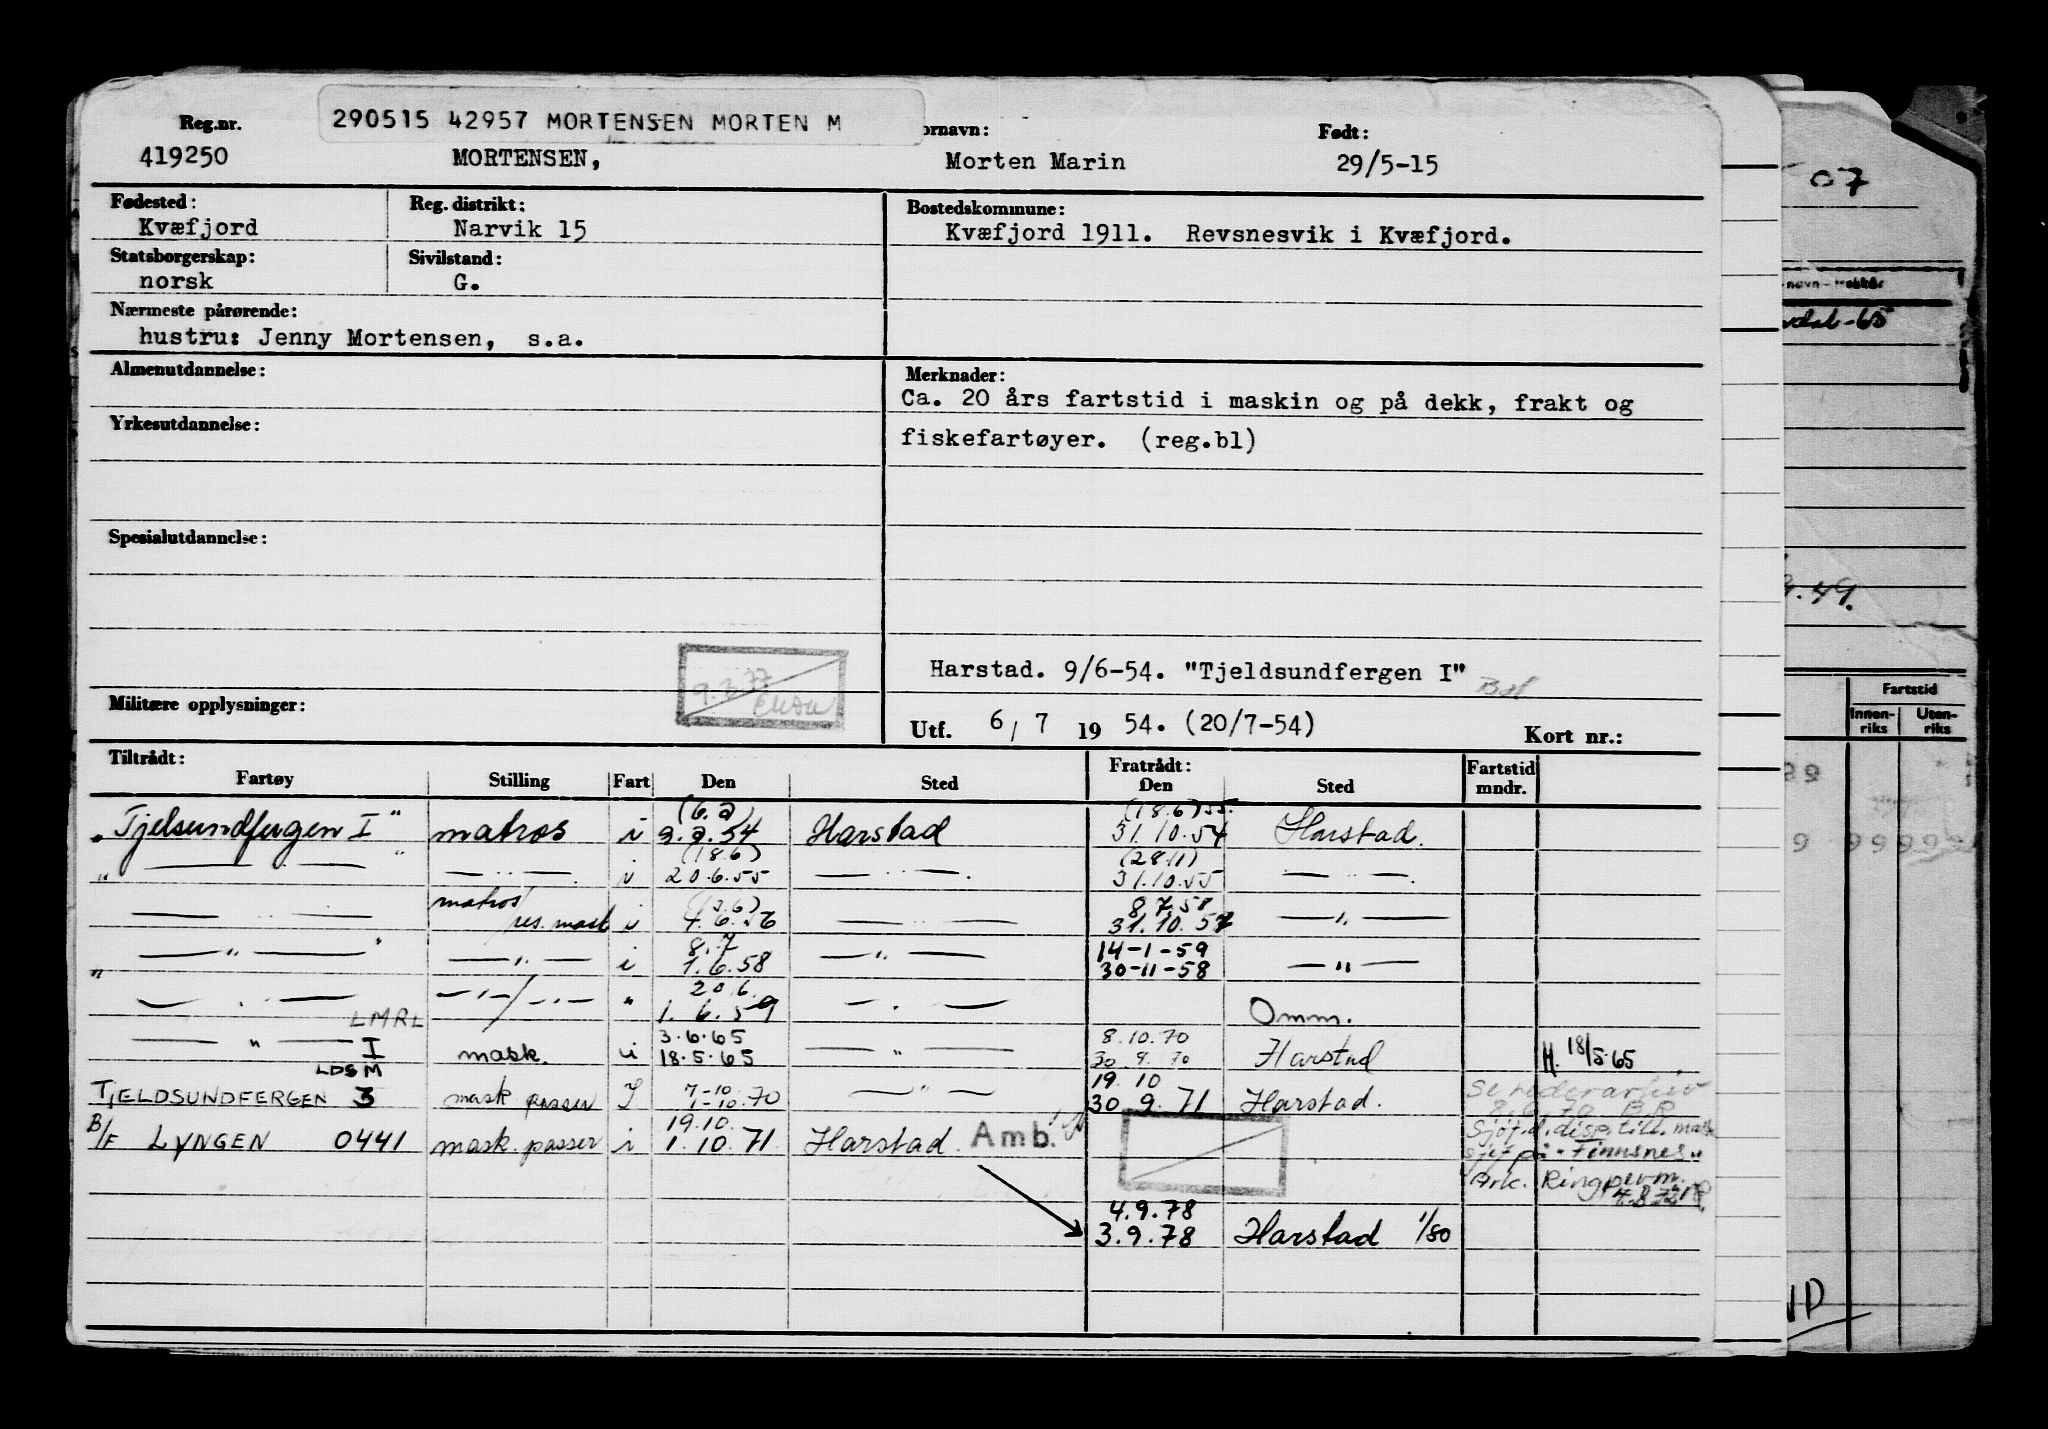 290515 42957 MORTENSEN MORTEN M
Reg.nr. ornavn: Født:
419250 MORTENSEN, Morten Marin 29/5-15
Fødested: Reg. distrikt: Bostedskommune:
Kvæfjord Narvik 15 Kvæfjord 1911. Revsnesvik i Kvæfjord.
Statsborgerskap: Sivilstand:
norsk G.
Nærmeste pårørende:
hustru: Jenny Mortensen, s.a.
Almenutdannelse: Merknader:
Ca. 20 års fartstid i maskin og på dekk, frakt og
Yrkesutdannelse:
fiskefartøyer. (reg.bl)
Spesialutdannelse:
Harstad. 9/6-54. "Tjeldsundfergen I"
Militære opplysninger:
Utf. 6/7 1954. (20/7-54) Kort nr.:
Tiltrådt: Fratrådt: Fartstid
Fartøy Stilling Fart Den Sted Den Sted mndr.
(18.6)55.
"Tjelsundfergen I" matros i 9.2.54 Harstad 31.10.54 Harstad.
(18.6) (28.11)
" — " — " — " — i 20.6.55 — " — 31.10.55 — " —
matros 8.7.58
— — res. mask i 4.6.56 — — 31.10.57 — " —
8.7 14-1-59
" — " — " — " — i 1.6.58 — " — 30-11-58 — " —
20.6.
— . — — " — / — " — " 1.6.59 — . — Omm.
LMRL 3.6.65 8.10.70
— " — I mask. i 18.5.65 — " — 30.9.70 Harstad H. 18/5.65
LDSM 7-10 19.10
TJELDSUNDFERGEN 3 mask passer I 1-10.70 — " — 30.9.71 Harstad. Se rederarkiv
19.10. 8.6.70 BR
B/F LYNGEN 0441 mask. passer i 1.10.71 Harstad. Amb. Sjøf.d. disp. till. mask
sjef på "Finnsnes"
Ark. Ringperm.
4.9.78
3.9.78 Harstad 1/80
07
-65
.49.
Fartstid
Innen-riks Uten-riks